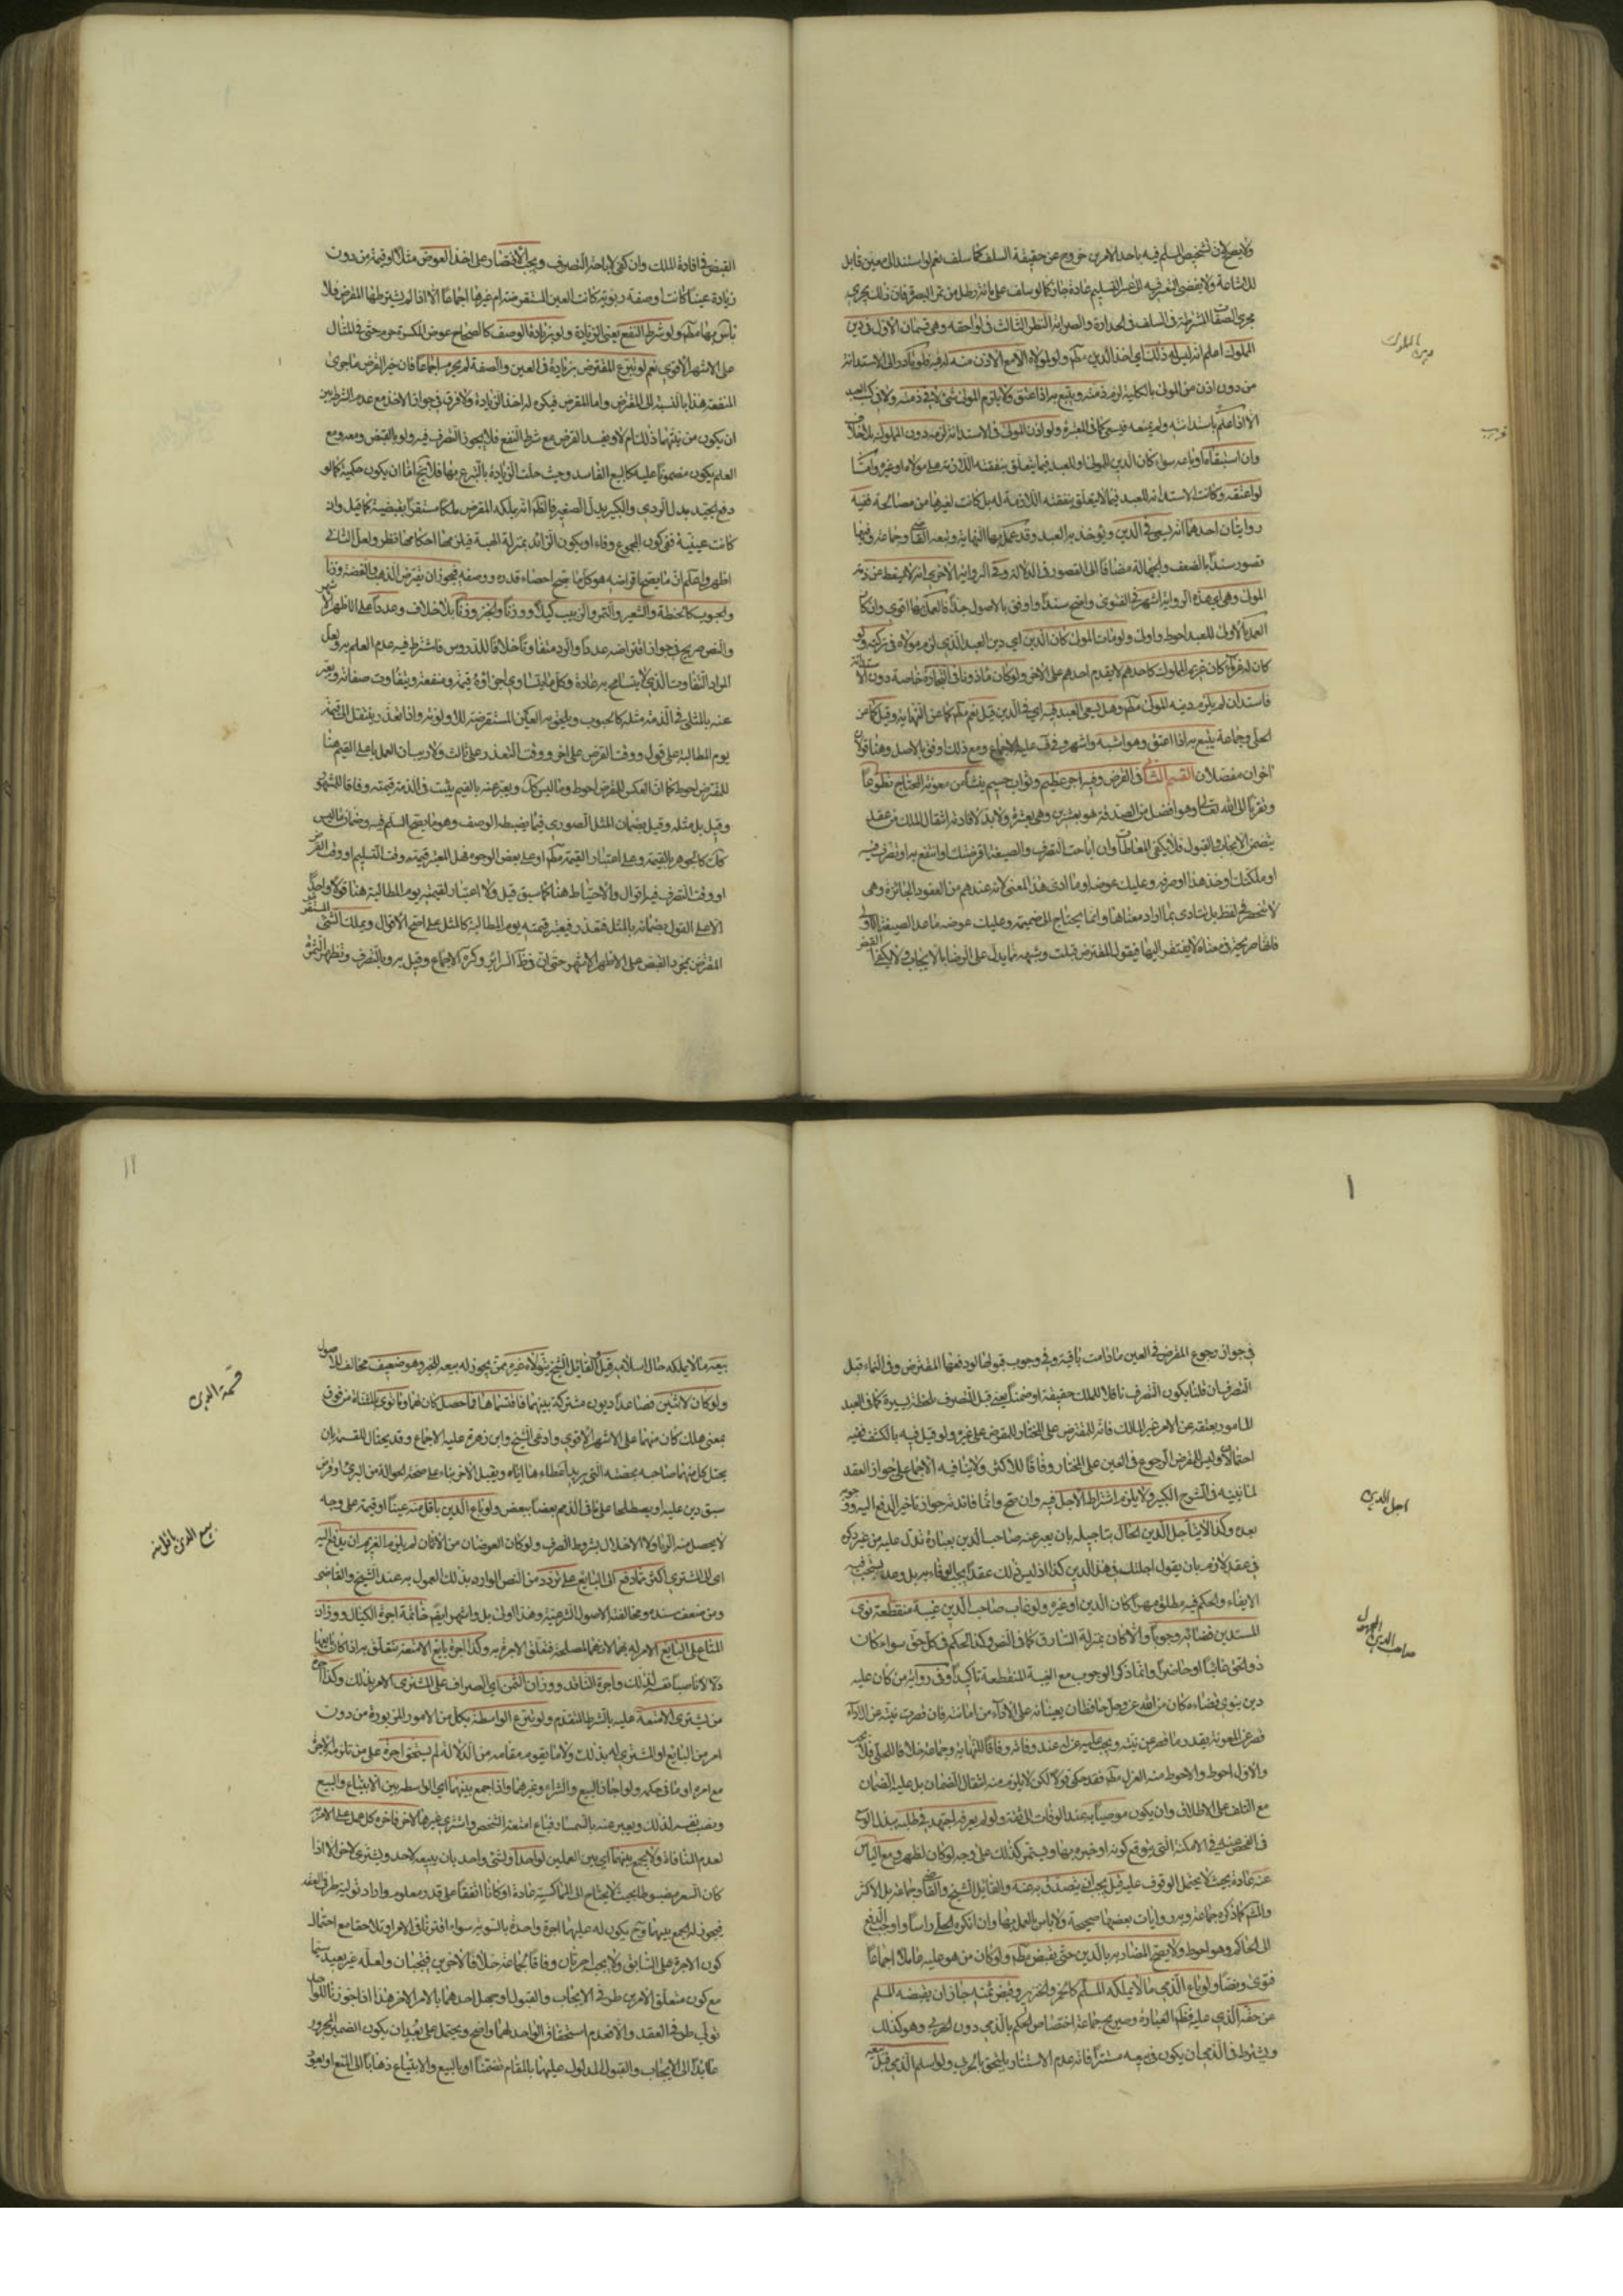 ولا يصح لأن تشخيص المسلم فيه باحد الامرين خروج عن حقيقة السلف كما سلف نعم لو استند الى معين قابل
للاشاعة ولا يفضي التغير فيه الى عسر التسليم عادة جاز كما لو سلف على مائة رطل من تمر البصرة فان ذلك يجري
مجرى الصفات المشترطة في السلف كالحدارة والصرابة النظر الثالث في لواحقه وهي قسمان الاول في دين
المملوك اعلم انه ليس له ذلك اي اخذ الدين مطلقا ولو لمولاه الا مع الاذن منه له فيه فلو بادر الى الاستدانة
من دون اذن من المولى بالكلية لزم ذمته ويتبع به اذا اعتق ولا يلزم المولى شئ لا في ذمته ولا في كسب العبد
دين المملوك
الا اذا علم باستدانته ولم يمنعه فيسعى كما في المعتبرة ولو اذن المولى في الاستدانة لزمه دون المملوك بلا خلاف
وان استبقاه او باعه سواء كان الدين للمولى او للعبد فيما يتعلق بنفقته اللازمة على مولاه او غيره واما
لو اعتقه وكانت الاستدانة للعبد فيما لا يتعلق بنفقته اللازمة له بل كانت لغيرها من مصالحه ففيه
روايتان احدهما انه يسعى في الدين ويؤخذ به العبد وقد عمل بها النهاية وتبعه القاضي وجماعة وفيها
قصور سندا بالضعف والجهالة مضافا الى القصور في الدلالة وفي الرواية الاخرى انه لا يسقط عن ذمة
المولى وهي اي هذه الرواية اشهر في الفتوى واصح سندا واوفق بالاصول جدا فالعمل بها اقوى وان كان
العمل بالاولى للعبد احوط واولى ولو مات المولى كان الدين اي دين العبد الذي لزم مولاه في تركته ولو
كان له غرماء كان غريم المملوك كاحدهم لا يقدم احدهم على الاخر ولو كان ماذونا في التجارة خاصة دون الاستدانة
فاستدان لم يلزم دينه المولى مطلقا وهل يسعى العبد فيه اي في الدين قيل نعم مطلقا كما عن النهاية وقيل كما عن
الحلي وجماعة يتبع به اذا اعتق وهو اشبه واشهر وفي الغنية عليه الاجماع ومع ذلك اوفق بالاصل وهنا قولان
اخران مفصلان القسم الثاني في القرض وفيه اجر عظيم وثواب جسيم ينشأ من معونة المحتاج تطوعا
وتقربا الى الله تعالى وهو افضل من الصدقة هو بعشرين وهي بعشرة ولا بد لافادته انتقال الملك من عقد
يتضمن الايجاب والقبول فلا يكفي المعاطات وان اباحت التصرف والصيغة اقرضتك او انتفع به او تصرف فيه
او ملكتك او خذ هذا او اصرفه وعليك عوضه او ما ادى هذا المعنى لانه عندهم من العقود الجائزة وهي
لا تنحصر في لفظ بل تتادى بما افاد معناها وانما يحتاج الى ضميمة وعليك عوضه ما عدا الصيغة الاولى
فانها صريحة في معناه لا يفتقر اليها فيقول المقترض قبلت وشبهه مما يدل على الرضا بالايجاب
القبض في افادة الملك وان كفى لاباحة التصرف ويجب الاقتصار على اخذ العوض مثلا او قيمة من دون
زيادة عينا كانت او صفة ربوية كانت العين المستقرضة ام غيرها اجماعا الا اذا لم يشترطها المقرض فلا
باس بها مطلقا ولو شرط النفع يعني الزيادة ولو بزيادة الوصف كالصحاح عوض المكسرة حرم حتى في المثال
على الاشهر الاقوى نعم لو تبرع المقترض بزيادة في العين والصفة لم يحرم اجماعا فان خير القرض ما جرى
المنفعة هذا بالنسبة الى المقترض واما المقرض فيكره له اخذ الزيادة ولا فرق في جواز الاخذ مع عدم الشرط بين
ان يكون من نيتهما ذلك ام لا ويفسد القرض مع شرط النفع فلا يجوز التصرف فيه ولو بالقبض ومعه ومع
العلم يكون مضمونا عليه كالبيع الفاسد وحيث حلت الزيادة بالتبرع بها فلا يخ اما ان يكون حكمية كما لو
دفع الجيد بدل الردي والكبير بدل الصغير فالظاهر انه يملكه المقرض ملكا مستقرا بقبضه كما قيل وان
كانت عينية ففي كون المجموع وفاء او يكون الزائد بمنزلة الهبة فيلزمها احكامها نظر ولعل الثاني
اظهر واعلم ان ما يصح اقراضه هو كل ما يصح احصاء قدره ووصفه فيجوز ان يقرض الذهب والفضة وزنا
والحبوب كالحنطة والشعير والتمر والزبيب كيلا ووزنا والخبز وزنا بلا خلاف وعددا على الاظهر الاشهر
والنص صريح في جواز اقتراضه عددا وان رد متفاوتا خلافا للدروس فاشترط فيه عدم العلم به ولعل
المراد التفاوت الذي لا يتسامح به عادة وكل ما يتساوى اجزاؤه قيمة ومنفعة ويتفاوت صفاته ويعبر
عنه بالمثلي في الذمة مثله كالحبوب ويلحق به العين المستقرضة للاولوية واذا تعذر ينتقل الى قيمته
يوم المطالبة على قول ووقت القرض على اخر ووقت التعذر على ثالث ولا ريب ان العمل باعلى القيم هنا
للمقترض احوط كما ان العكس للمقرض احوط وما ليس كذلك ويعبر عنه بالقيمي يثبت في الذمة قيمته وفاقا للمشهور
وقيل بل مثله وقيل بضمان المثل الصوري فيما يضبطه الوصف وهو ما يصح السلم فيه وضمان ما ليس
كذلك كالجوهر بالقيمة وعلى اعتبار القيمة مطلقا او على بعض الوجوه فهل المعتبر قيمته وقت التسليم او وقت القرض
او وقت التصرف فيه اقوال والاحتياط هنا كما سبق قيل ولا اعتبار لقيمته يوم المطالبة هنا قولا واحدا
الا على القول بضمانه بالمثل فتعذر فيعتبر قيمته يوم المطالبة كالمثل على اصح الاقوال ويملك الشئ
المقترض بمجرد القبض على الاظهر الاشهر حتى ان في ظاهر السرائر وكره الاجماع وقيل به وبالتصرف وتظهر الثمرة
في جواز رجوع المقرض في العين ما دامت باقية وفي وجوب قبولها لو دفعها المقترض وفي النماء قبل
التصرف ان قلنا بكون التصرف ناقلا للملك حقيقة او ضمنا يعني قبل التصرف بلحظة يسيرة كما في العبد
المامور بعتقه عن الامر غير المالك فانه للمقترض على المختار وللمقرض على غيره ولو قيل فيه بالكشف ففيه
احتمالان وليس للمقرض الرجوع في العين على المختار وفاقا للاكثر ولا ينافيه الاجماع على جواز العقد
لما نبينه في الشرح الكبير ولا يلزم اشتراط الاجل فيه وان صح وانما فائدته جواز تاخير الدفع اليه
اجل الدين
بعده وكذا لا يتاجل الدين الحال بتاجيله بان يعبر عنه صاحب الدين بعبارة تدل عليه من غير ذكره
في عقد لازم بان يقول اجلتك في هذا الدين كذا اذ ليس ذلك عقدا يجب الوفاء به بل وعد يستحب فيه
الايفاء والحكم فيه مطلق مهرا كان الدين او غيره ولو غاب صاحب الدين غيبة منقطعة نوى
المستدين قضائه وجوبا والا كان بمنزلة السارق كما في النص وكذا الحكم في كل حق سواء كان
صاحب الدين المجهول
ذو الحق غائبا او حاضرا وانما ذكر الوجوب مع الغيبة المنقطعة تاكيدا وفي رواية من كان عليه
دين ينوي قضاءه كان من الله عز وجل حافظان يعينانه على الاداء من امانته فان قصرت نيته عن الاداء
قصر عن المعونة بقدر ما قصر من نيته ويجب عليه عزله عند وفاته وفاقا للنهاية وجماعة خلافا للحلي فلا يجب
والاول احوط والاحوط منه العزل مطلقا فقد حكي قولا لكن لا يلزم منه انتقال الضمان بل عليه الضمان
مع التلف على الاطلاق وان يكون موصيا به عند الوفات الى ثقة ولو لم يعرفه اجتهد في طلبه ببذل الوسع
في الفحص عنه في الامكنة التي يتوقع كونه او خبره بها ويستمر كذلك على وجه لو كان لظهر ومع الياس
عنه عادة بحيث لا يحتمل الوقوف عليه قيل يجب ان يتصدق به عنه والقائل الشيخ والقاضي وجماعة بل الاكثر
والفهم كما ذكره جماعة وبه روايات بعضها صحيحة ولا باس بالعمل بها وان انكره الحلي راسا واوجب الدفع
الى الحاكم وهو احوط ولا يصح المضاربة بالدين حتى يقبض مطلقا ولو كان من هو عليه عاملا اجماعا
فتوى ونصا ولو باع الذمي ما لا يملكه المسلم كالخمر والخنزير وقبض ثمنه جاز ان يقبضه المسلم
عن حقه الذمي عليه فظاهر العبارة وصريح جماعة اختصاص الحكم بالذمي دون الحربي وهو كذلك
ويشترط في الذمي ان يكون في بيعه مستترا فانه عدم الاستتار يلحق بالحربي ولو اسلم الذمي قبل بيعه
بيعه ما لا يملكه حال اسلامه قيل والقائل الشيخ يتولاه غيره ممن يجوز له بيعه للخبر وهو ضعيف مخالف للاصول
ولو كان لاثنين فصاعدا ديون مشتركة بينهما فاقتسماها فما حصل كان لهما وما توى بالمثناة من فوق
قسمة الدين
بمعنى هلك كان منهما على الاشهر الاقوى وادعى الشيخ وابن زهرة عليه الاجماع وقد يحتال للقسمة بان
يحيل كل منهما صاحبه بحصته التي يريد اعطاءها اياه ويقبل الاخر بناء على صحة الحوالة من البري او فرض
سبق دين عليه او يصطلحا على ما في الذمم بعضا ببعض ولو باع الدين باقل منه عينا او قيمة على وجه
بيع الدين باقل منه
لا يحصل منه الربا ولا الاخلال بشروط الصرف ولو كان العوضان من الاثمان لم يلزم الغريم ان يدفع اليه
اي الى المشتري اكثر مما دفع الى البايع على تردد من النص الوارد بذلك المعمول به عند الشيخ والقاضي
ومن ضعف سنده ومخالفته الاصول الشرعية وهذا اولى بل واشهر ايضا خاتمة اجرة الكيال ووزان
المتاع على البايع الامر له بهما لانهما لمصلحته فتعلق الاجرة به وكذا اجرة بايع الامتعة تتعلق به اذا كان بايعها
دلالا ناصبا نفسه لذلك واجرة الناقد ووزان الثمن اي الصراف على المشتري الامر بذلك وكذا اجرة
من يشتري الامتعة عليه بالشرط المتقدم ولو تبرع الواسطة بكل من الامور المزبورة من دون
امر من البايع او المشتري له بذلك ولا ما يقوم مقامه من الدلالة لم يستحق اجرة على من تلزمه الاجرة
مع امره او ما في حكمه ولو اجاز البيع والشراء وغيرهما واذا جمع بينهما اي الواسطة بين الابتياع والبيع
ونصب نفسه لذلك ويعبر عنه بالسمسار فباع امتعة الشخص واشترى غيرها لاخر فاجرة كل عمل على الامر به
لعدم المنافاة ولا يجمع بينهما اي بين العملين لواحد او لشئ واحد بان يبيعه لاحد ويشتري لاخر الا اذا
كان السعر مضبوطا بحيث لا يحتاج الى المماكسة عادة او كانا اتفقا على قدر معلوم واراد توليه طرفي العقد
فيجوز له الجمع بينهما وح يكون له عليهما اجرة واحدة بالسوية سواء اقترنا في الامر او تلاحقا مع احتمال
كون الاجرة على السابق ولا يجب اجرتان وفاقا لجماعة خلافا لاخرين فيجبان ولعله غير بعيد سيما
مع كون متعلق الامرين طرفي الايجاب والقبول او جعل احدهما بالامر الاخر هذا اذا جوزنا للواحد
تولي طرفي العقد والا فعدم استحقاق الواحد لهما واضح ويحتمل على بعد ان يكون الضمير المجرور
عائدا الى الايجاب والقبول المدلول عليهما بالمقام تضمنا او بالبيع والابتياع ذهابا الى المنع